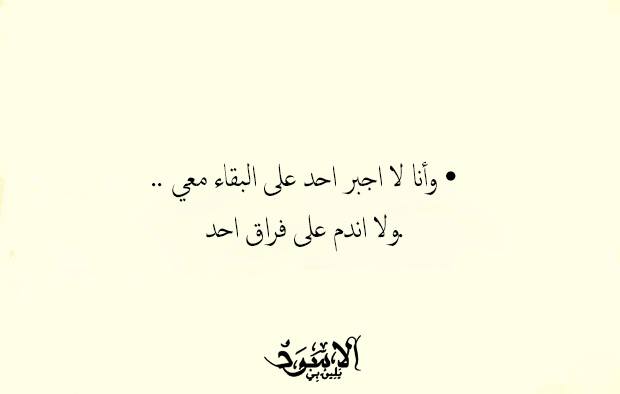 • وأنا لا اجبر احد على البقاء معي ..
.ولا اندم على فراق احد
الاسود
يليق بي